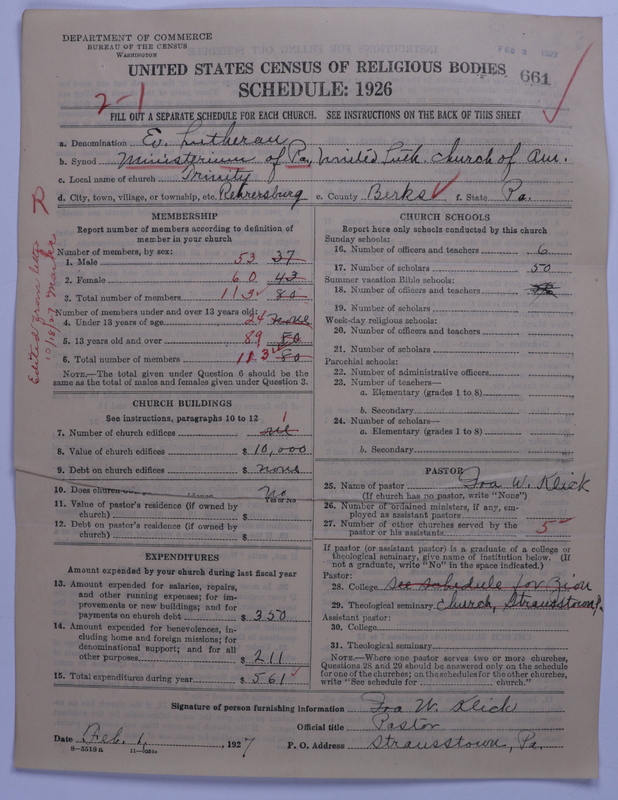 DEPARTMENT OF COMMERCE
BUREAU OF THE CENSUS
WASHINGTON
FEB 3 1927
UNITED STATES CENSUS OF RELIGIOUS BODIES
661
SCHEDULE: 1926
2-1
FILL OUT A SEPARATE SCHEDULE FOR EACH CHURCH. SEE INSTRUCTIONS ON THE BACK OF THIS SHEET
a. Denomination Ev. Lutheran
b. Synod Ministerium of Pa, United Luth. Church of Am.
c. Local name of church Trinity
d. City, town, village, or township, etc. Rehrersburg e. County Berks f. State Pa.
MEMBERSHIP
Report number of members according to definition of
member in your church
Number of members, by sex:
1. Male 53 37
2. Female 60 43
3. Total number of members 113 80
Number of members under and over 13 years old:
4. Under 13 years of age 24 none
5. 13 years old and over 89 80
6. Total number of members 113 80
NOTE.—The total given under Question 6 should be
same as the total of males and females given under Question 3.
Edited from letter
10/18/27
CHURCH BUILDINGS
See instructions, paragraphs 10 to 12
7. Number of church edifices 1
8. Value of church edifices $ 10,000
9. Debt on church edifices $ none
10. Does church No
Yes or No
11. Value of pastor's residence (if owned by
church) $
12. Debt on pastor's residence (if owned by
church) $
EXPENDITURES
Amount expended by your church during last fiscal year
13. Amount expended for salaries, repairs,
and other running expenses; for im-
provements or new buildings; and for
payments on church debt $ 350
14. Amount expended for benevolences, in-
cluding home and foreign missions; for
denominational support; and for all
other purposes $ 211
15. Total expenditures during year $ 561
CHURCH SCHOOLS
Report here only schools conducted by this church
Sunday schools:
16. Number of officers and teachers 6
17. Number of scholars 50
Summer vacation Bible schools:
18. Number of officers and teachers
19. Number of scholars
Week-day religious schools:
20. Number of officers and teachers
21. Number of scholars
Parochial schools:
22. Number of administrative officers
23. Number of teachers—
a. Elementary (grades 1 to 8)
b. Secondary
24. Number of scholars—
a. Elementary (grades 1 to 8)
b. Secondary
PASTOR
25. Name of pastor Ira W. Klick
(If church has no pastor, write "None")
26. Number of ordained ministers, if any, em-
ployed as assistant pastors
27. Number of other churches served by the
pastor or his assistants 5
If pastor (or assistant pastor) is a graduate of a college or
theological seminary, give name of institution below. (If
not a graduate, write "No" in the space indicated.)
Pastor:
28. College See schedule for Zion
29. Theological seminary Church, Strausstown, Pa.
Assistant pastor:
30. College
31. Theological seminary
NOTE.—Where one pastor serves two or more churches,
Questions 28 and 29 should be answered only on the schedule
for one of the churches; on the schedules for the other churches,
write "See schedule for church."
Signature of person furnishing information Ira W. Klick
Official title Pastor
Date Feb. 1, 1927 P. O. Address Strausstown, Pa.
8-5518a